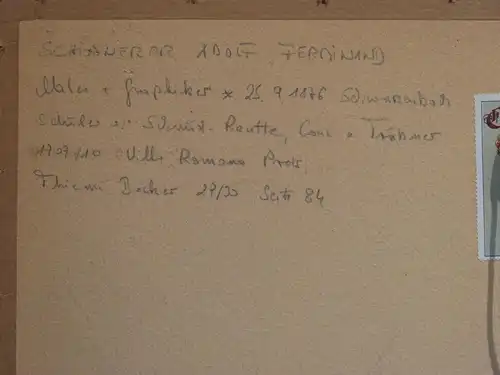 SCHINNERER ADOLF FERDINAND
Maler + Graphiker * 25. 9 1876 Schwarzenbach
Schüler v. Schmid-Reutte, Conz + Trübner
1909/10 Villa Romana Preis
Thieme Becker 29/30 Seite 84